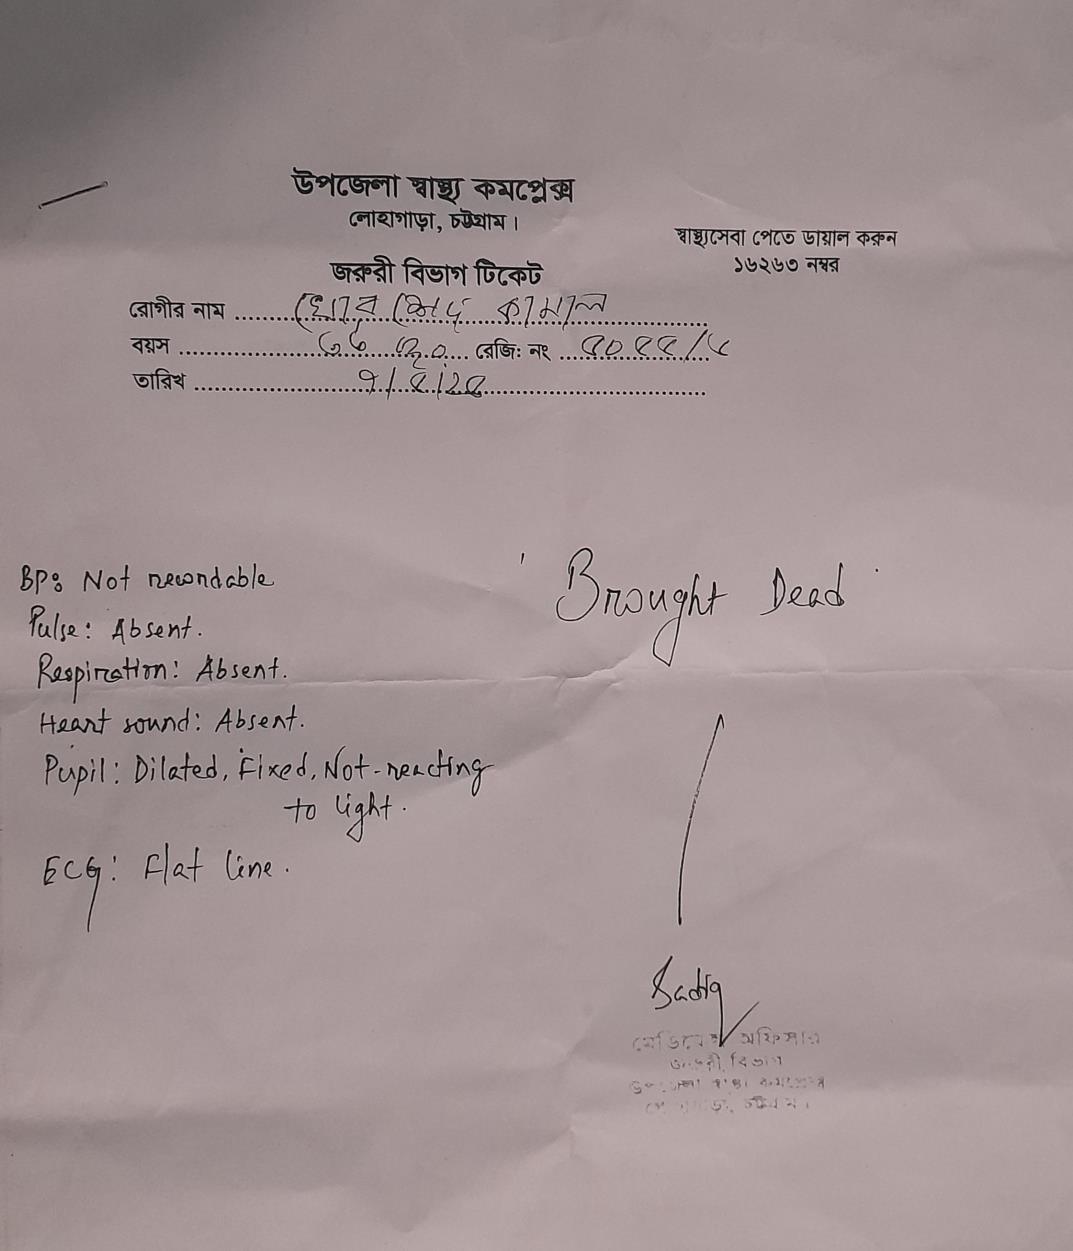 উপজেলা স্বাস্থ্য কমপ্লেক্স
লোহাগাড়া, চট্টগ্রাম।
স্বাস্থ্যসেবা পেতে ডায়াল করুন
১৬২৬৩ নম্বর
জরুরী বিভাগ টিকেট
রোগীর নাম ........ কামাল
বয়স ........ রেজি: নং ........
তারিখ ........
BP: Not recordable
Pulse: Absent.
Respiration: Absent.
Heart sound: Absent.
Pupil: Dilated, Fixed, Not-reacting
to light.
ECG: Flat line.
Brought Dead
Sadiq
মেডিকেল অফিসার
জরুরী বিভাগ
উপজেলা স্বাস্থ্য কমপ্লেক্স
লোহাগাড়া, চট্টগ্রাম।